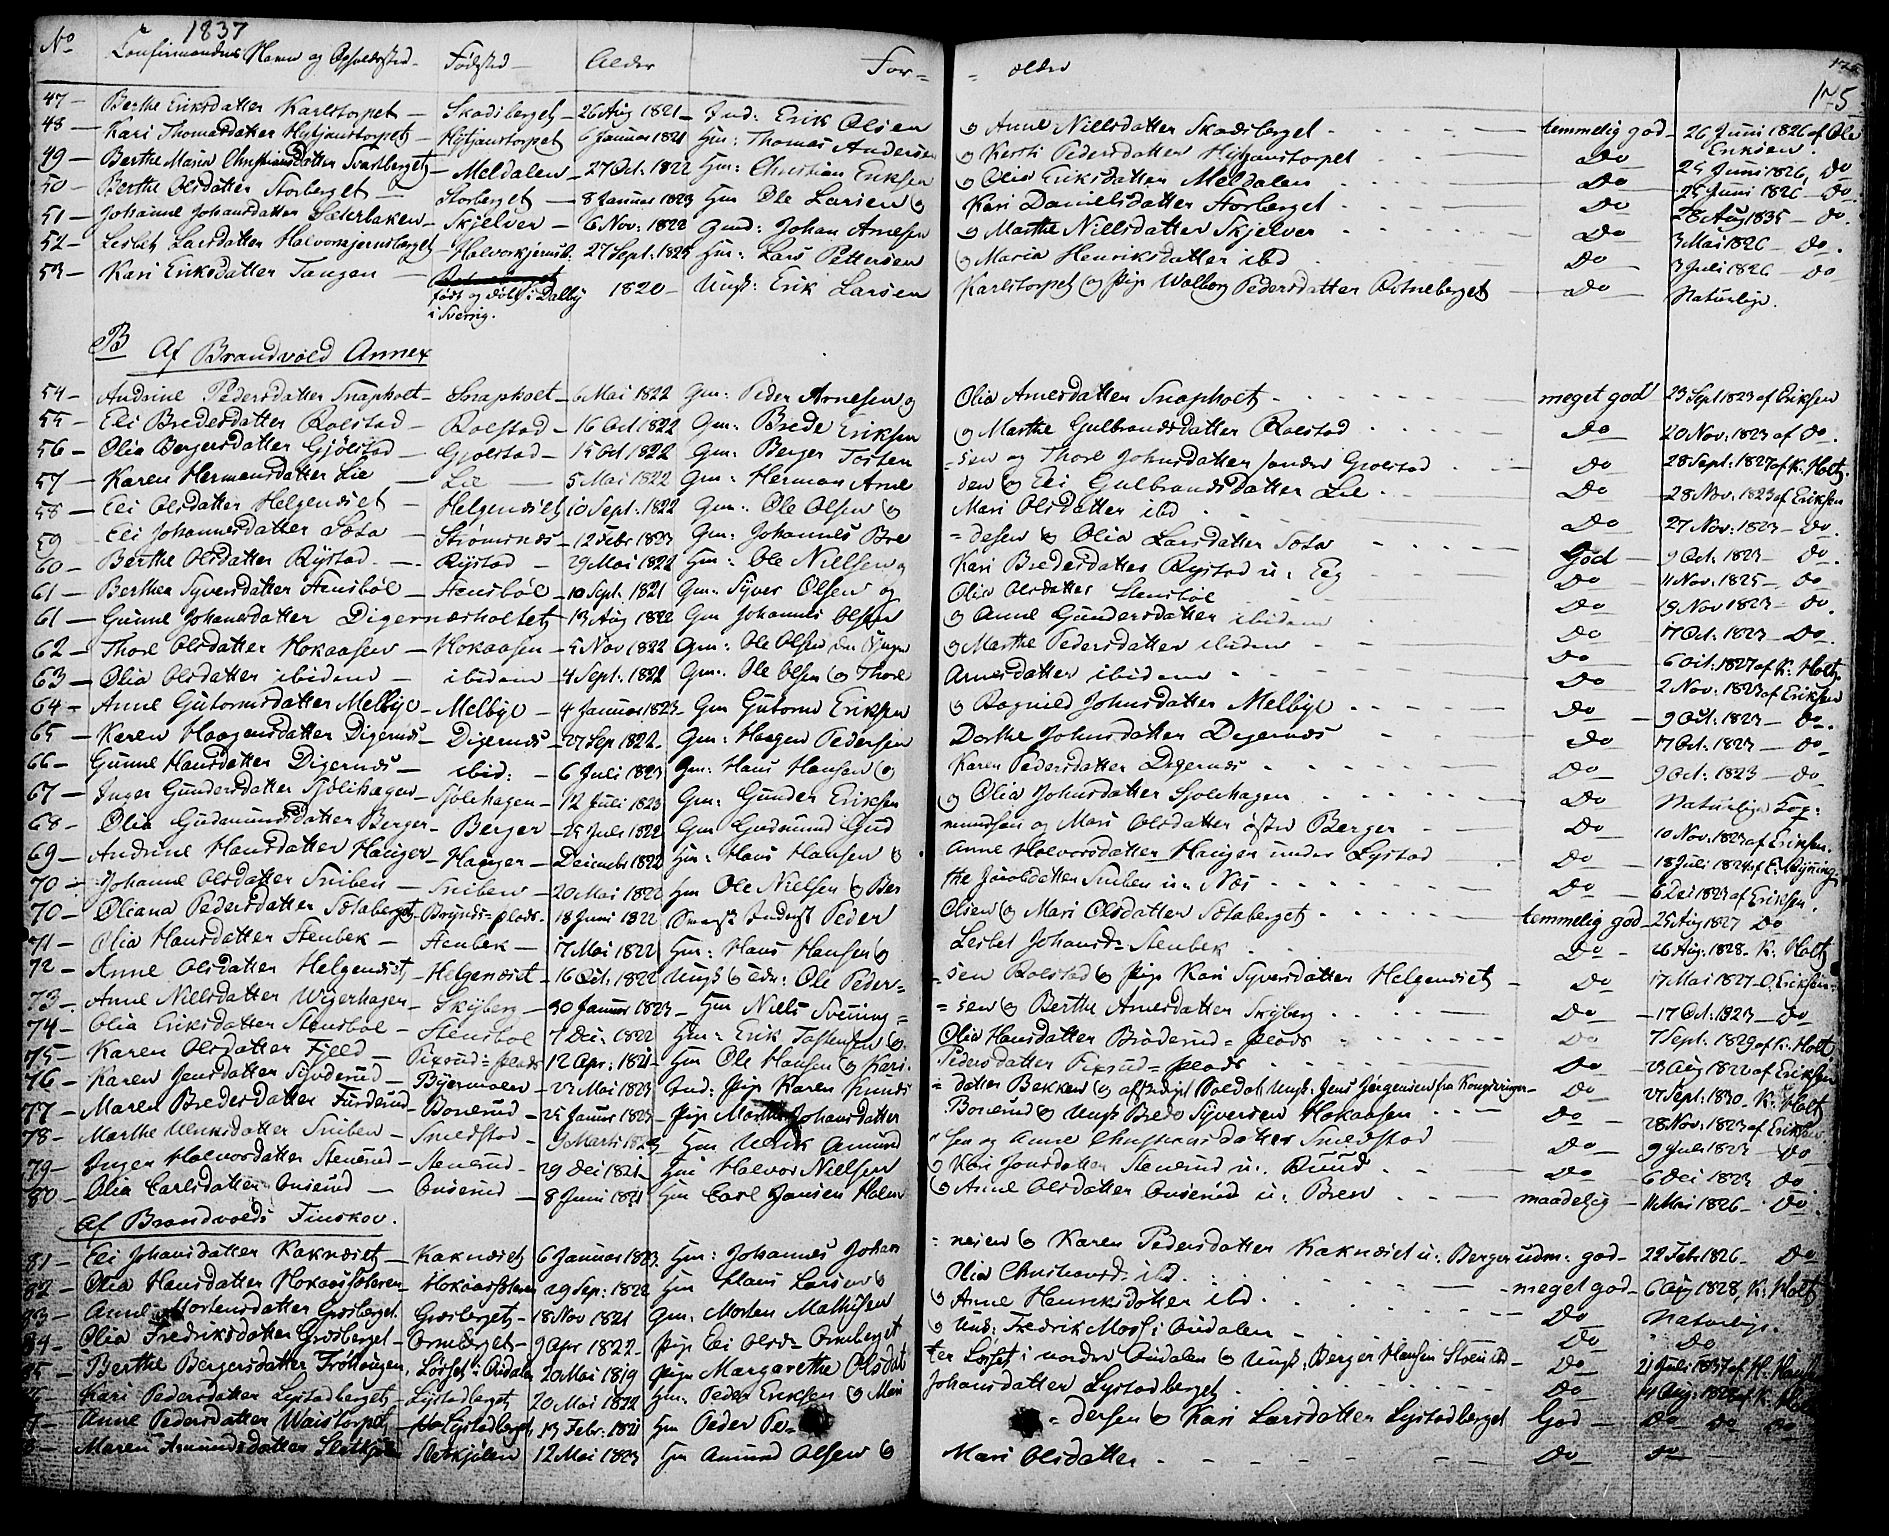 1837
No Confirmandens Navn og Opholdssted Fødested Alder For= =ældre 175
47 - Berthe Eriksdatter Karlstorpet - Skadsberget - 26 Aug 1821 - Ind: Erik Olsen og Anne Nielsdatter Skadsberget - temmelig god - 26 Juni 1826 af Ole Eriksen.
48 - Kari Thomasdatter Hytjanstorpet - Hytjanstorpet 6 Januar 1821 Hm: Thomas Andersen og Kersti Pedersdatter Hytjanstorpet Do 25 Juni 1826 Do
49 - Berthe Maria Christiansdatter Svartberget - Meldalen - 27 Oct. 1822 Hm: Christian Eriksen og Olia Eriksdatter Meldalen Do 25 Juni 1826 - Do
50 - Berthe Olsdatter Storberget - Storberget - 8 Januar 1823 Hm Ole Larsen og Kari Danielsdatter Storberget Do 28 Aug 1835 - Do.
51 - Johanne Johansdatter Sæterbaken - Skjelver - 6 Nov: 1822 Gmd: Johan Arnesen og Marthe Nielsdatter Skjelver Do 3 Mai 1826 - Do.
52 - Lisbet Larsdatter Halvorskjernsberget - Halvorskjernsb. 27 Sept. 1823 Hm: Lars Pettersen og Maria Henriksdatter ibd Do 3 Juli 1826 - Do
53 - Kari Eriksdatter Tangen - født og døbt i Dalby i Sverrig. 1820 - Ungk: Erik Larsen Karlstorpet og Pige Walborg Pedersdatter Rotneberget - Do Naturlige.
B Af Brandvold Annex
54 - Andrine Pedersdatter Snaphoet - Snaphoet - 6 Mai 1822 Gm: Peder Arnesen og Olia Arnesdatter Snaphoet meget god 23 Sept 1823 af Eriksen
55 - Eli Bredesdatter Rolstad - Rolstad - 16 Oct 1822 Gm: Brede Eriksen og Marthe Gulbrandsdatter Rolstad Do 20 Nov: 1823 af Do.
56 - Olia Bergersdatter Gjølstad - Gjølstad - 15 Oct 1822 Gm: Berger Tosten =sen og Thore Johnsdatter søndre Gjølstad Do 28 Sept: 1827 af K: Holt.
57 - Karen Hermansdatter Lie - Lie - 5 Mai 1822 Gm: Herman Arne sen og Eli Gulbrandsdatter Lie Do 28 Nov. 1823 af Eriksen
58 - Eli Olsdatter Helgenæset - Helgenæset 10 Sept. 1822 Gm: Ole Olsen og Mari Olsdatter ibd Do 27 Nov: 1823 - Do.
59 - Eli Johannesdatter Sota - Strømsnæs - 12 Febr 1823 Gm: Johannes Bre =desen og Olia Larsdatter Sota God - 9 Oct. 1823 - Do
60 - Berthe Olsdatter Rystad - Rystad - 29 Mai 1822 Hm: Ole Nielsen og Kari Bredesdatter Rystad u: Eg Do 11 Nov. 1825 - Do
61 - Berthea Syversdatter Stensbøl - Stensbøl - 10 Sept. 1821 Gm: Syver Olsen og Olia Olsdatter Stensbøl Do 19 Nov 1823 - Do.
61 - Gunne Johansdatter Digernæsholtet 13 Aug 1822 Gm Johannes Olsen og Anne Gundersdatter ibidem Do 17 Oct. 1823 - Do.
62 - Thore Olsdatter Hokaasen - Hokaasen - 5 Nov 1822 Gm: Ole Olsen den Yngre og Marthe Pedersdatter ibidem Do 6 Oct: 1827 af K. Holt
63 - Olia Olsdatter ibidem - ibidem - 4 Sept. 1822 Gm: Ole Olsen og Thore Arnesdatter ibidem Do 2 Nov: 1823 af Eriksen
64 - Anne Gutormsdatter Melbye - Melbye - 4 Januar 1823 - Gm Gutorm Eriksen og Ragnild Johnsdatter Melbye Do 9 Oct: 1823 - Do.
65 - Karen Haagensdatter Digernæs - Digernæs - 27 Sep 1822 - Gm: Haagen Pedersen Dorthe Johnsdatter Digernæs Do 17 Oct. 1823 - Do
66 - Gunne Hansdatter Digernæs - ibid: - 6 Juli 1823 Gm: Hans Hansen og Karen Pedersdatter Digernæs Do 9 Oct: 1823 - Do
67 - Inger Gundersdatter Sjølihagen - Sjølihagen - 12 Juli 1823 Gm: Gunder Eriksen og Olia Johnsdatter Sjølihagen Do Naturlige Kop:
68 - Olia Gudmundsdatter Berger - Berger - 25 Juli 1822 Gm Gudmund Gud mundsen og Mari Olsdatter østre Berger Do 10 Nov: 1823 af Eriksen.
69 - Andrine Hansdatter Hauger - Hauger - December 1822 Hm: Hans Hansen og Anne Halvorsdatter Hauger under Lystad Do 18 Juli 1824 af
70 - Johanne Olsdatter Sniben - Sniben - 20 Mai 1822 Hm Ole Nielsen og Ber the Jacobsdatter Sniben u: Næs Do 6 Dec 1823 af Eriksen.
70 - Oliana Pedersdatter Sotaberget - Brynds=plads - 18 Juni 1822 Svensk Inderst Peder Olsen og Mari Olsdatter Sotaberget temmelig god - 25 Aug 1827 Do
71 - Olia Hansdatter Stenbek - Stenbek - 17 Mai 1822 Hm: Hans Hansen og Lisbet Johansd= Stenbek Do - 26 Aug: 1828 - K: Holt
72 - Anne Olsdatter Helgenæset - Helgenæset - 16 Oct. 1822 Ungk og Edr: Ole Peder= =sen Rolstad og Pige Kari Syversdatter Helgenæset - Do 17 Mai 1827 - O. Eriksen
73 - Anne Nielsdatter Wigerhagen - Skyberg - 30 Januar 1823 - Hm Niels Svening= =sen og Berthe Arnesdatter Skyberg Do - 17 Oct: 1823 - Do
74 - Olia Eriksdatter Stensbøl - Stensbøl 7 Dec: 1822 Hm: Erik Tostensen og Olia Hansdatter Brøderud=plads Do 7 Sept. 1829 af K: Holt
75 - Karen Olsdatter Fjeld - Pixrud=plads 12 Apr: 1821 - Hm Ole Hansen og Kari Pedersdatter Pixrud=plads Do 23 Aug 1822 af Eriksen
76 - Karen Jensdatter Synderud - Byermoen - 23 Mai 1823 Ind: Pige Karen Knuds =datter Bekken og afskediget Soldat Ungk: Jens Jørgensen fra Kongsvinger - Do 27 Sept: 1830 - K: Holt
77 - Maren Bredesdatter Furderud - Bonerud - 25 Januar 1823 - Pige Marthe Johansdatter Bonerud og Ungk Brede Syversen Hokaasen Do 28 Nov: 1823 af Eriksen
78 - Marthe Ulriksdatter Sniben - Smedstad - 9 Marts 1823 Hm Ulrik Amund =sen og Anne Christiansdatter Smedstad Do 9 Juli 1823 - Do
79 - Inger Halvorsdatter Stenerud - Stenerud - 29 Dec 1821 - Hm Halvor Nielsen og Kari Jonsdatter Stenerud u: Ruud Do 6 Dec 1823 Do
80 - Olia Carlsdatter Buserud - Buserud - 8 Juni 1821 Hm Carl Jansen Holm og Anne Olsdatter Buserud u: Bren maadelig - 11 Mai 1826 - Do
Af Brandvolds Finskov.
81 - Eli Johansdatter Kaknæset - Kaknæset 6 Januar 1823. Hm: Johannes Johan =nesen og Karen Pedersdatter Kaknæset u: Berger udm: god - 22 Feb: 1826 - Do
82 - Olia Hansdatter Hokaassæteren - Hokaassæteren 29 Sep: 1822 Hm Hans Larsen og Olia Christiansd= ibd meget god - 6 Aug 1828, K: Holt
83 - Anne Mortensdatter Græsberget - Græsberget - 18 Nov 1821 Gm: Morten Mathisen og Anne Henriksdatter ibd. Do Naturlige.
84 - Olia Fredriksdatter Græsberget - Orneberget - 9 Apr 1822 - Pige Eli Olsd= Orneberget og Ungk: Fredrik Mosl i Audalen Do Do
85 - Berthe Bergersdatter Trøhaugen, Løvset i Audalen 20 Mai 1819 Pige Margarethe Olsdat ter Løvset i nordre Audalen og Ungk: Berger Hansen Stoen ibd - Do 21 Juli 1837 af
Kari Pedersdatter Lystadberget - Lystadberget - 20 Mai 1822 Hm: Peder Eriksen og Mari Johansdatter Lystadberget Do 11 Aug: 1828 af K: Holt
Anne Pedersdatter Waistorpet - Lystadberget, 13 Febr: 1821 Hm Peder Pe= =dersen og Kari Larsdatter Lystadberget God - Do Do Do
Maren Amundsdatter Sletkjølen - Sletkjølen 12 Mai 1823 Hm Amund Olsen og Mari Olsdatter Do Do